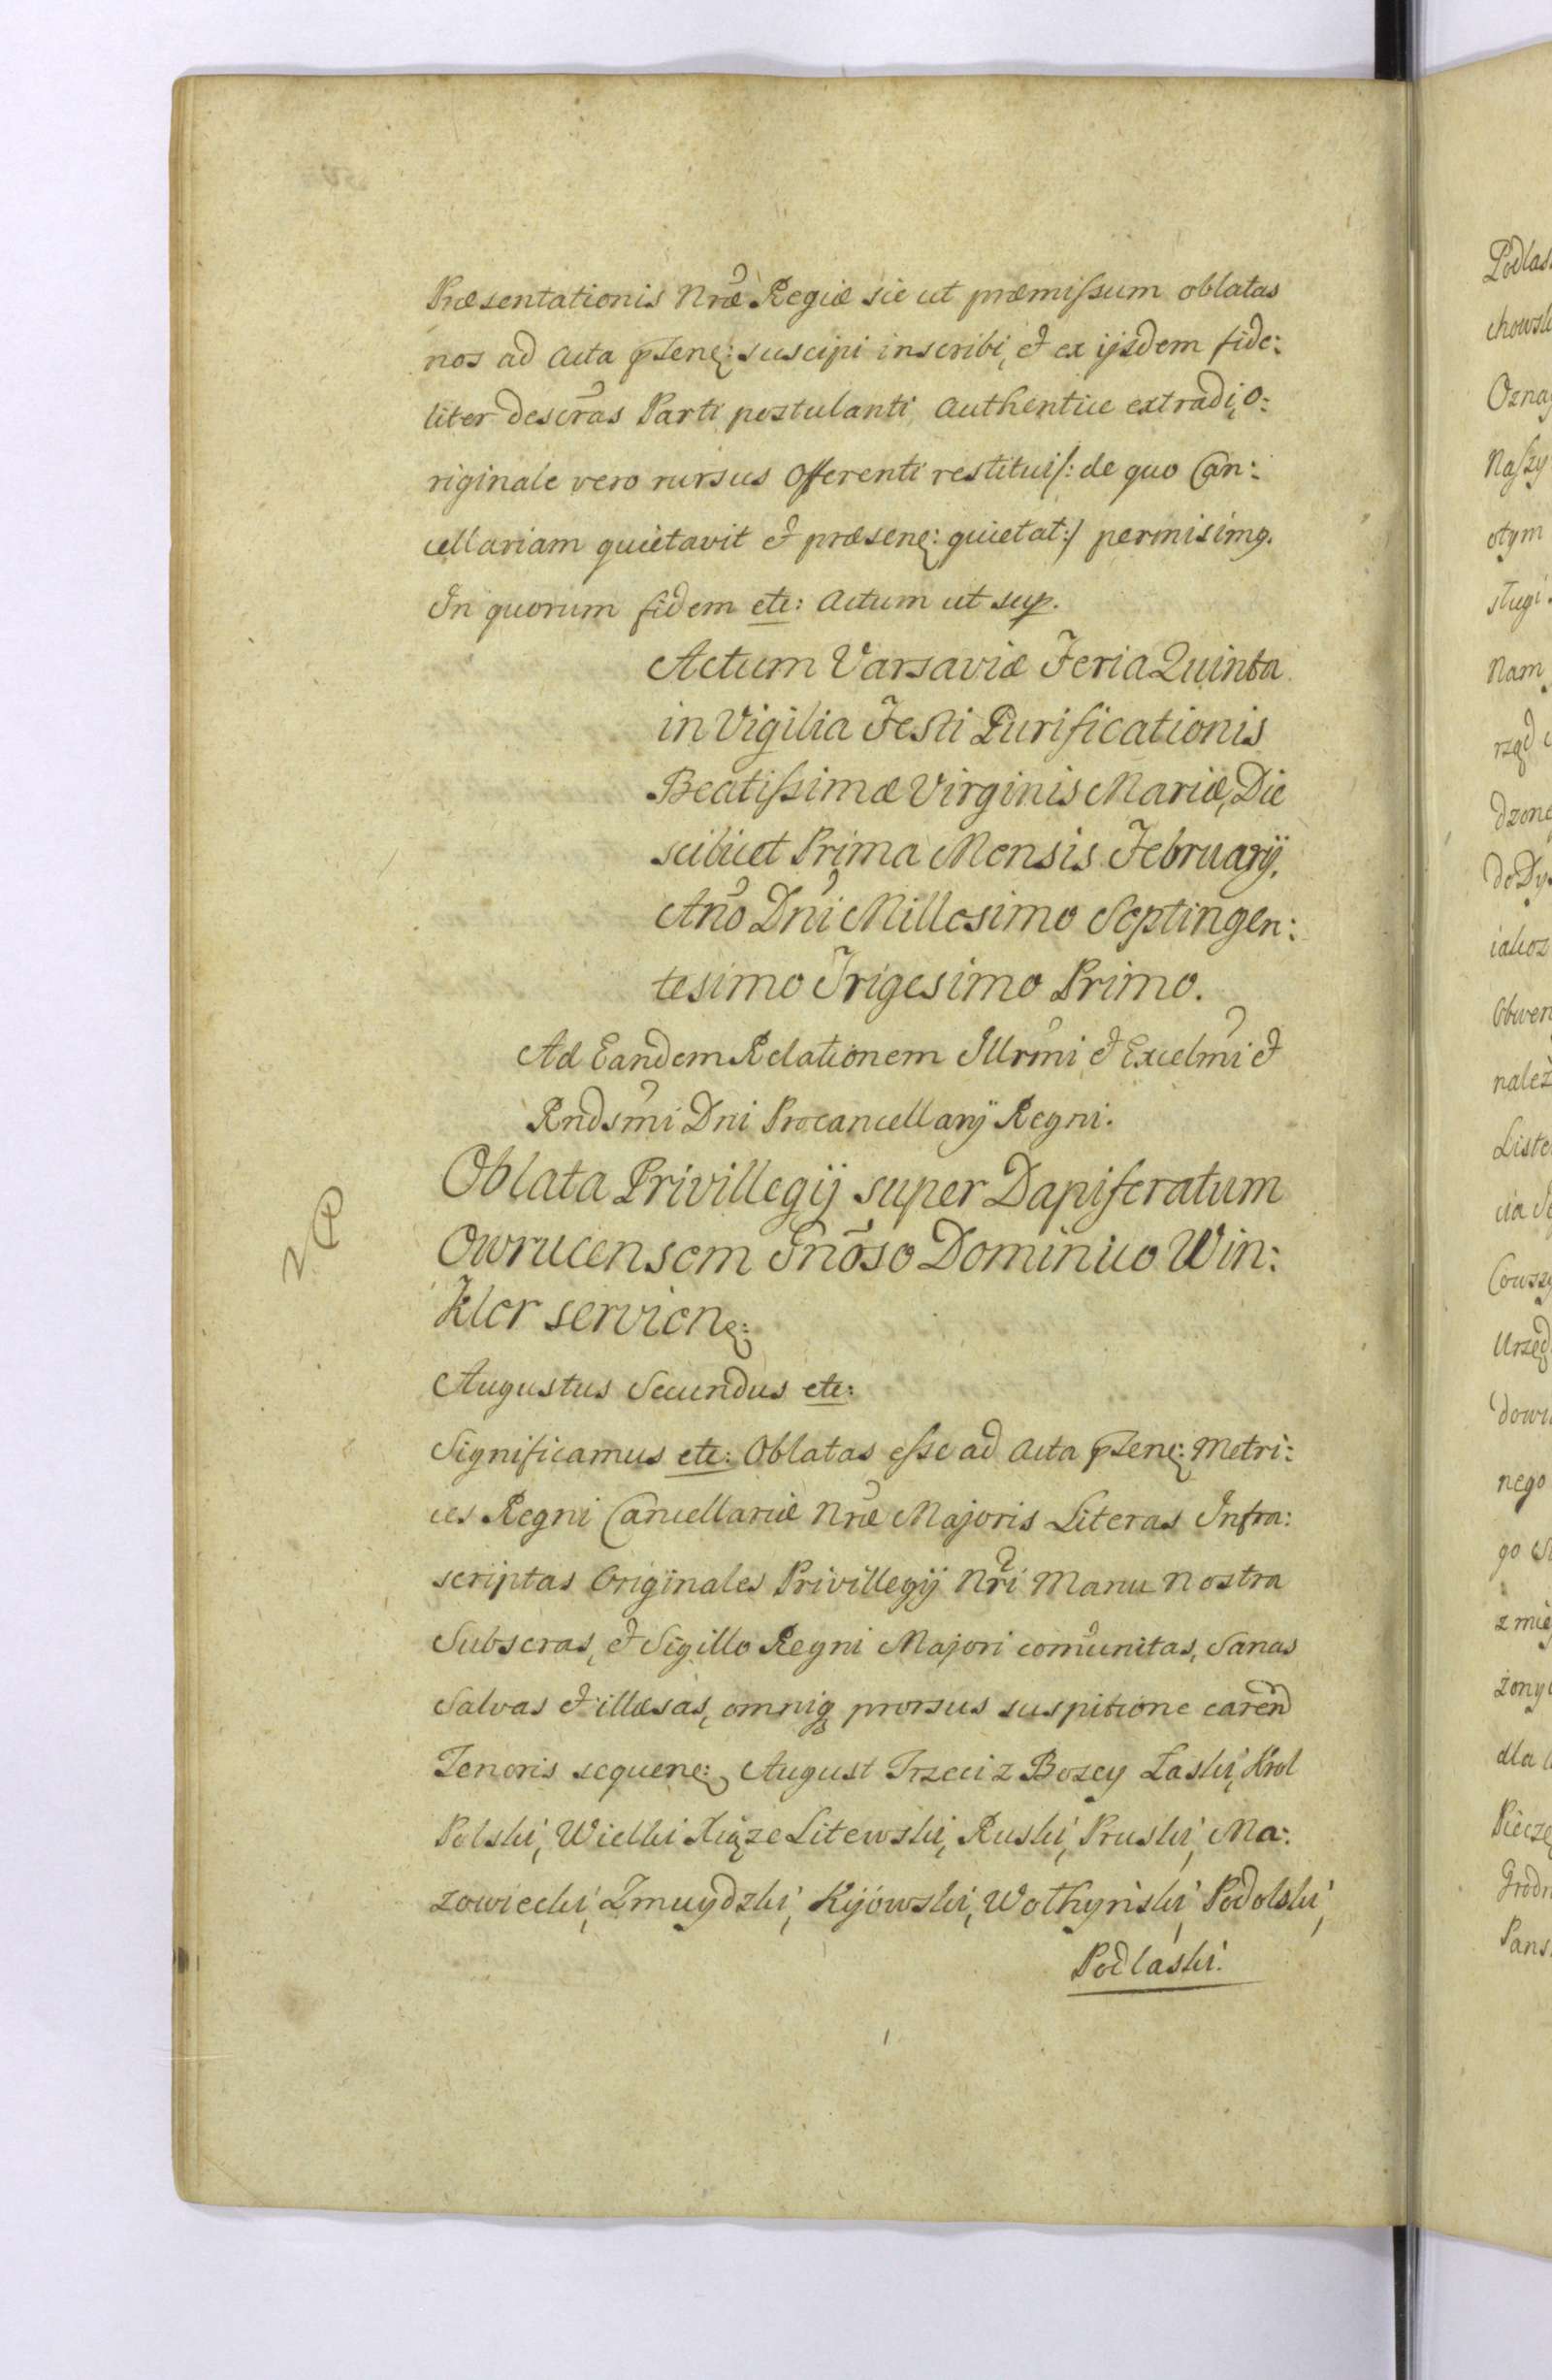 Præsentationis Nræ Regiæ sic ut præmissum oblatas
nos ad Acta pɫenę: suscipi inscribi, et ex ijsdem fide:
liter descras Parti postulanti Authentice extradi, o:
riginale vero rursus Offerenti restitui /: de quo Can:
cellariam quietavit et præsenę: quietat :/ permisimq.
In quorum fidem etc: Actum ut sup.
Actum Varsaviæ Feria Quinta
in Vigilia Festi Purificationis
Beatissimæ Virginis Mariæ, Die
scilicet Prima Mensis February,
Año Dni Millesimo Septingen:
tesimo Trigesimo Primo.
Ad Eandem Relationem Illrmi et Excelmi et
Rndsmi Dni Procancellarij Regni.
Oblata Privillegij super Dapiferatum
Owrucensem Gnoso Dominico Win:
kler servienę:
Augustus Secundus etc:
Significamus etc: Oblatas esse ad Acta pɫenę: Metri:
ces Regni Cancellariæ Nræ Majoris Literas Infra:
scriptas Originales Privillegij Nri Manu Nostra
Subscras, et Sigillo Regni Majori comunitas, Sanas
Salvas et illæsas, omniq prorsus suspitione carend
Tenoris sequenę: August Trzeci z Bozey Łaski, Krol
Polski, Wielki Xiąze Litewski, Ruski, Pruski, Ma:
zowiecki, Zmuydzki, Kijówski, Wołhyński, Podolski,
Podlaski.
Podlas
chowsk
Oznay
Naszy
otym
sługi
Nam
rząd
dzone
do Dy
iakoz
Obwen
należ
Listo
cia
Cowszy
Urzęd
dowi
nego
go
z mie
żony
dla
Pieczę
Grodn
Pans